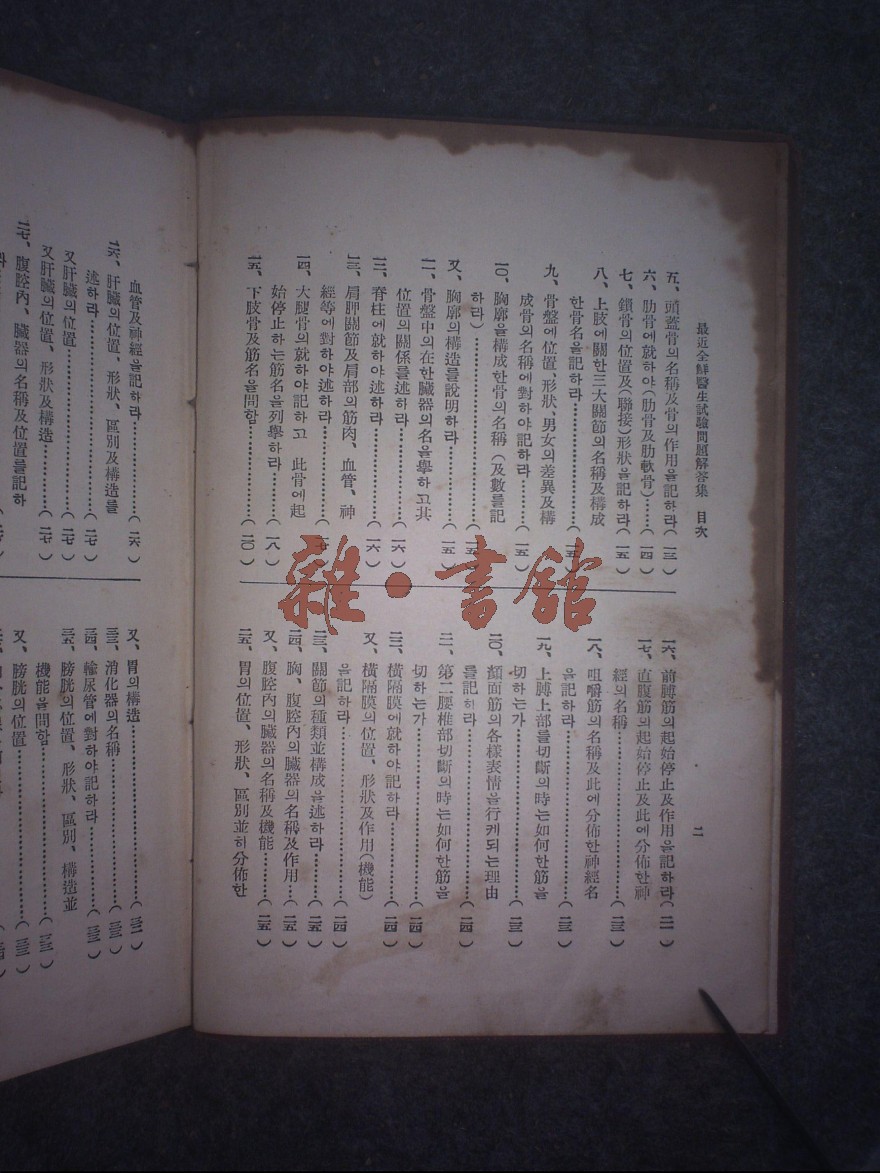 最近全鮮醫生試驗問題解答集 目次
二
五、頭蓋骨의名稱及骨의作用을記하라(一三)
六、肋骨에就하야(肋骨及肋軟骨)……(一四)
七、鎖骨의位置及(聯接)形狀을記하라(一五)
八、上肢에關한三大關節의名稱及構成
한骨名을記하라…………(一五)
九、骨盤에位置、形狀、男女의差異及構
成骨의名稱에對하야記하라……(一五)
一〇、胸廓을構成한骨의名稱(及數를記
하라)…………(一五)
又、胸廓의構造를說明하라……(一五)
一一、骨盤中의在한臟器의名을擧하고其
位置의關係를述하라……(一六)
一二、脊柱에就하야述하라…………(一六)
一三、肩胛關節及肩部의筋肉、血管、神
經等에對하야述하라…………
一四、大腿骨의就하야記하고 此骨에起
始停止하는筋名을列擧하라……(一八)
一五、下肢骨及筋名을問함…………(二〇)
一六、前膊筋의起始停止及作用을記하라(二一)
一七、直腹筋의起始停止及此에分佈한神
經의名稱…………(二三)
一八、咀嚼筋의名稱及此에分佈한神經名
을記하라…………(二三)
一九、上膊上部를切斷의時는如何한筋을
切하는가…………(二三)
二〇、顔面筋의各樣表情을行케되는理由
를記하라…………(二四)
二一、第二腰椎部切斷의時는如何한筋을
切하는가…………(二四)
二二、橫隔膜에就하야記하라…………(二四)
又、橫隔膜의位置、形狀及作用(機能)
을記하라…………(二四)
二三、關節의種類並構成을述하라……(二五)
二四、胸、腹腔內의臟器의名稱及作用…(二五)
又、腹腔內의臟器의名稱及機能……(二五)
二五、胃의位置、形狀、區別並히分佈한
血管及神經을記하라…………(二六)
二六、肝臟의位置、形狀、區別及構造를
述하라…………(二七)
又肝臟의位置…………(二七)
又肝臟의位置、形狀及構造……(二七)
二七、腹腔內、臟器의名稱及位置를記하
라
又、胃의構造…………(三二)
三三、消化器의名稱…………(三三)
三四、輸尿管에對하야記하라……(三三)
三五、膀胱의位置、形狀、區別、構造並
機能을問함…………(三三)
又、膀胱의位置…………(三三)
雜·書館